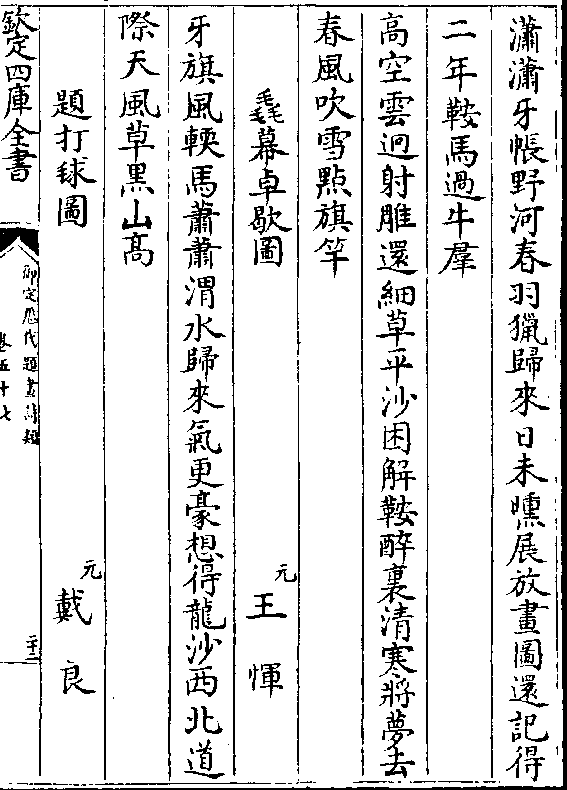 瀟瀟牙帳野河春羽獵歸來日未曛展放畫圖還記得
二年鞍馬過牛羣
高空雲迥射雕還細草平沙困解鞍醉裏清寒將夢去
春風吹雪點旗竿
毳幕卓歇圖 元 王惲
牙旗風輭馬蕭蕭渭水歸來氣更豪想得龍沙西北道
際天風草黑山高
題打毬圖 元 戴良
欽定四庫全書
御定歷代題畫詩類
卷五十七
二十二